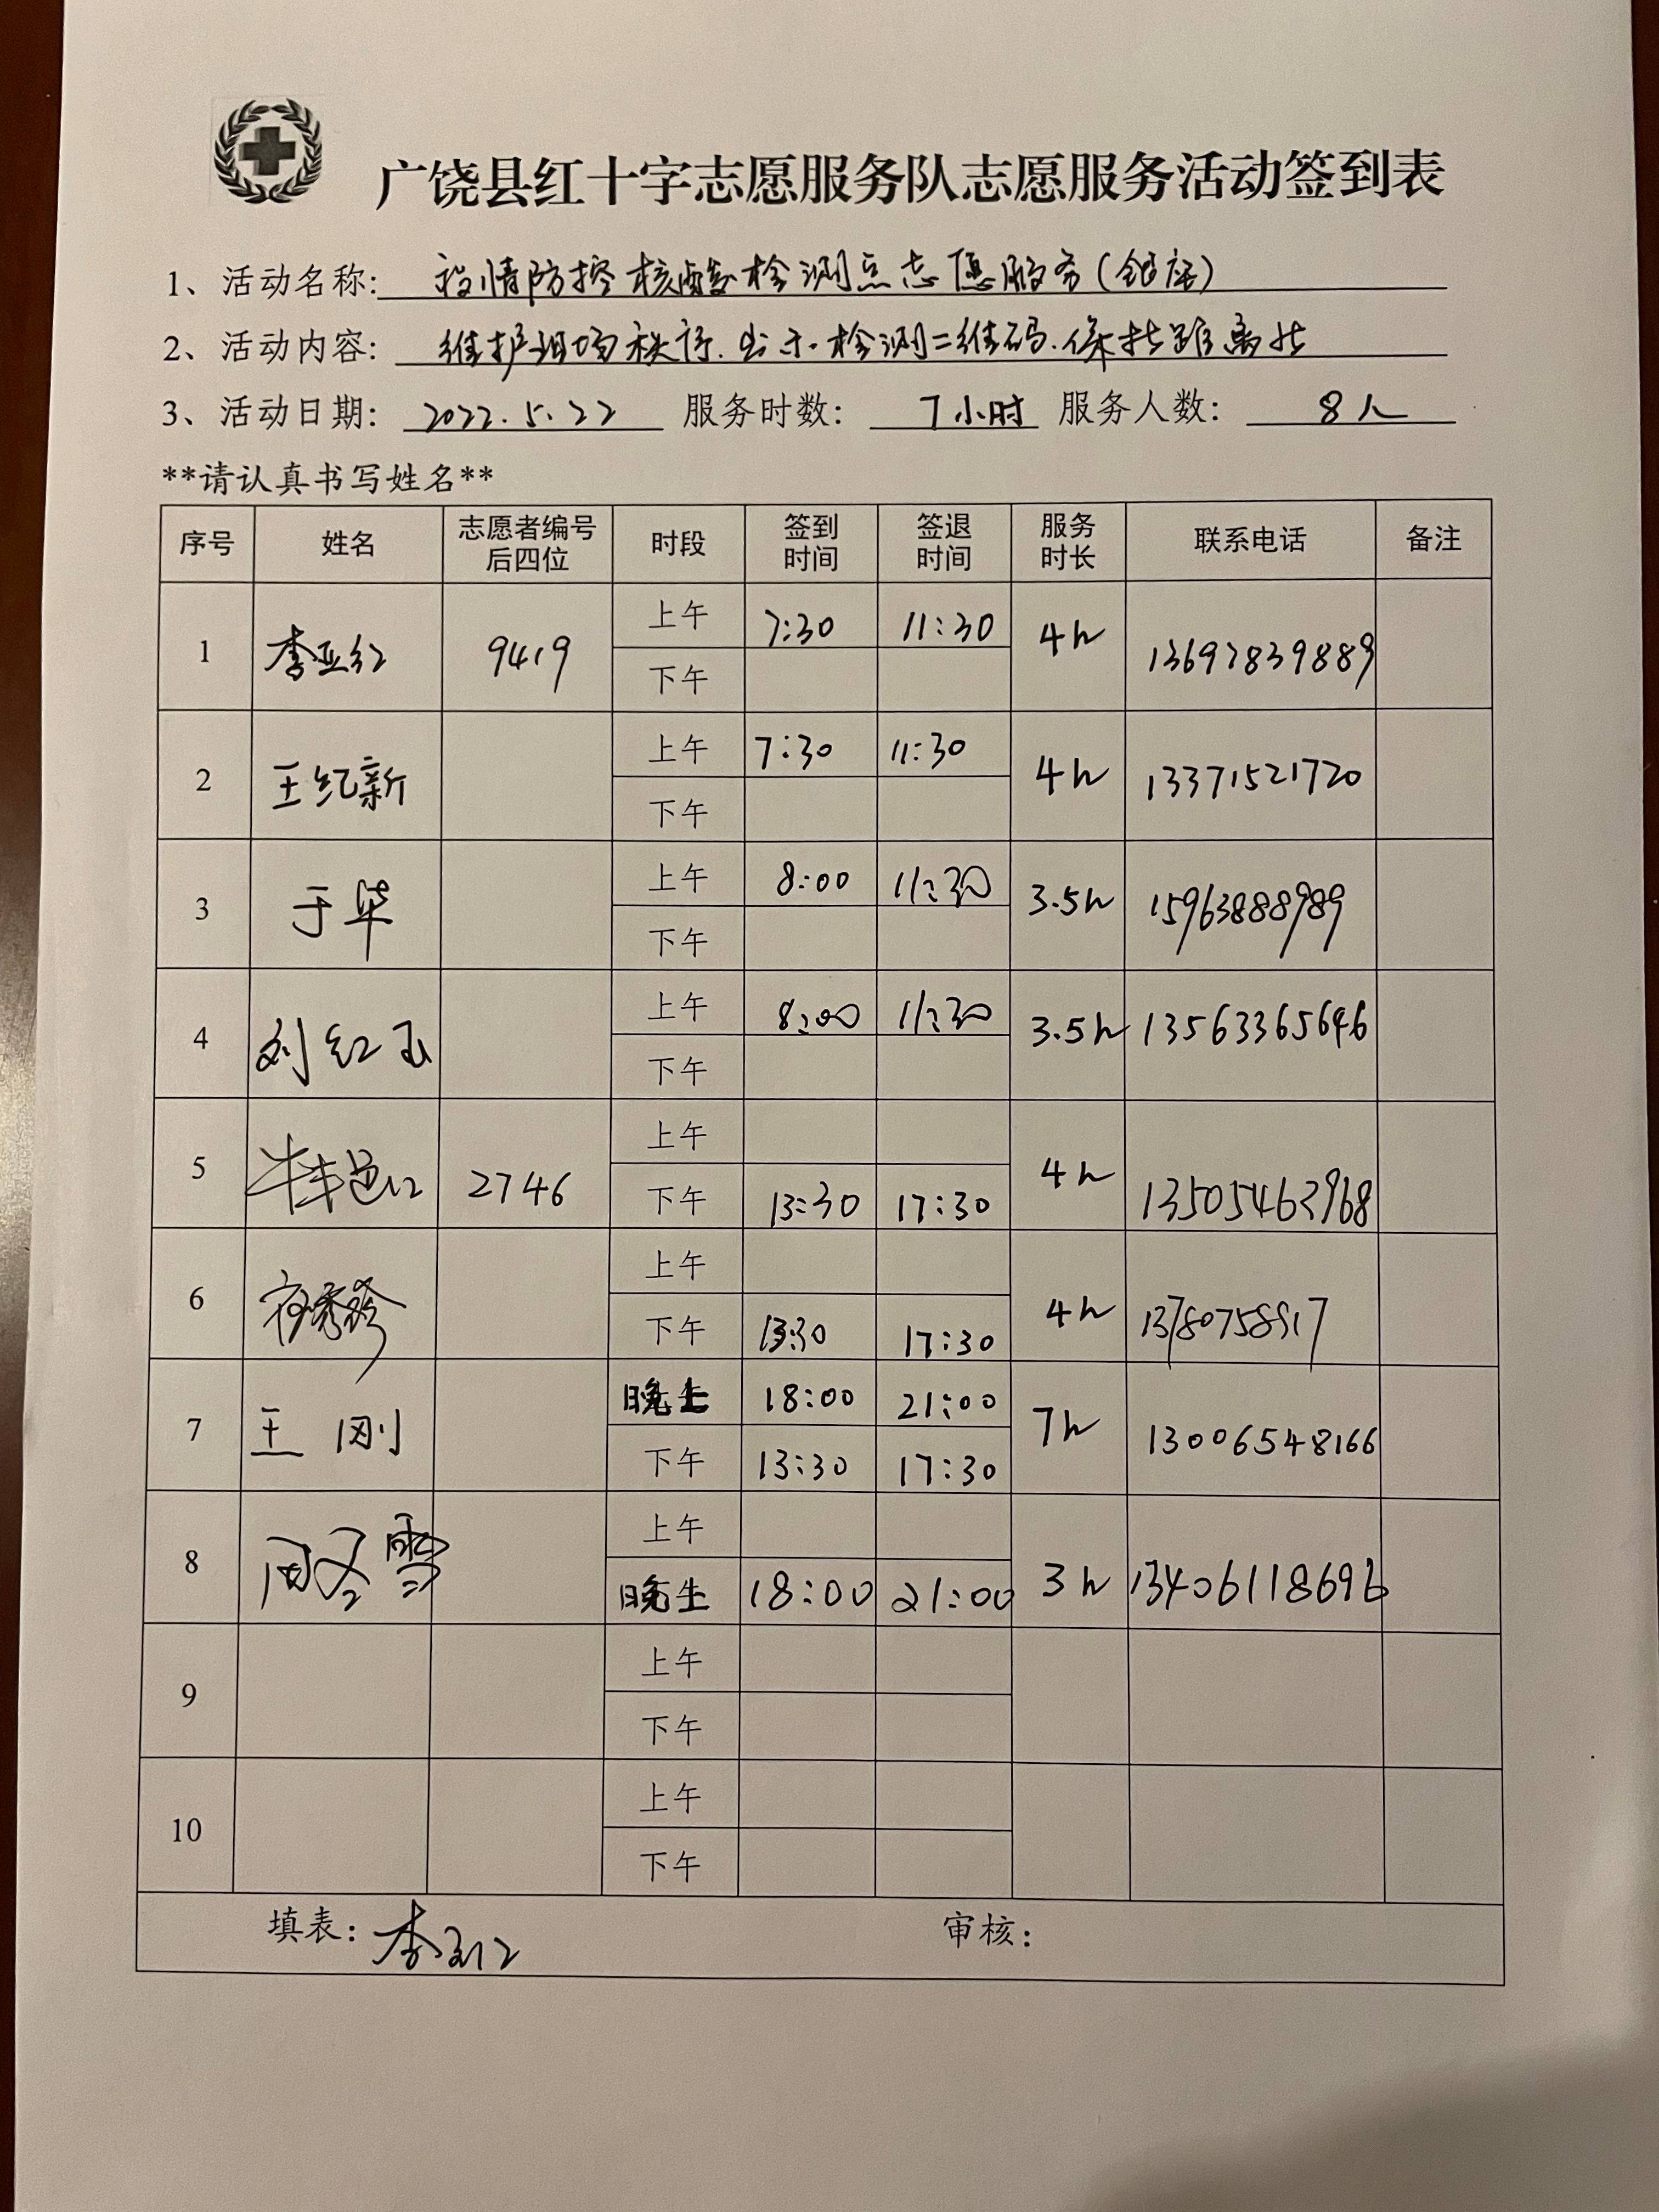 广饶县红十字志愿服务队志愿服务活动签到表
1、活动名称: 疫情防控核酸检测点志愿服务(银座)
2、活动内容: 维护现场秩序.出示检测二维码.保持距离
3、活动日期: 2022.5.22 服务时数: 7小时 服务人数: 8人
**请认真书写姓名**
序号 姓名 志愿者编号后四位 时段 签到时间 签退时间 服务时长 联系电话 备注
1 李亚红 9419 上午 7:30 11:30 4h 13697839889
下午
2 王纪新 上午 7:30 11:30 4h 13371521720
下午
3 于华 上午 8:00 11:30 3.5h 15963888989
下午
4 刘红玉 上午 8:00 11:30 3.5h 13563365646
下午
5 2746 上午 4h
下午 13:30 17:30
6 上午 4h
下午 13:30 17:30
7 王刚 晚上 18:00 21:00 7h 13006548166
下午 13:30 17:30
8 周冬雪 上午 3h 13406118696
晚上 18:00 21:00
9 上午
下午
10 上午
下午
填表: 李亚红 审核: